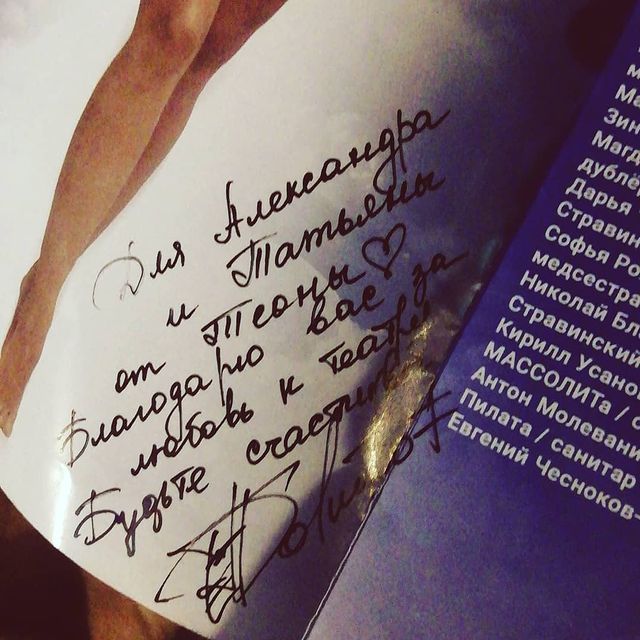 Для Александра
и Татьяны
от Теоны
Благодарю вас за
любовь к театру
Будьте счастливы
м
Ма
Зин
Магд
дублё
Дарья
Стравин
Софья Ро
медсестра
Николай Бл
Стравинский
Кирилл Усано
МАССОЛИТа / с
Антон Молевани
Пилата / санитар
Евгений Чесноков-